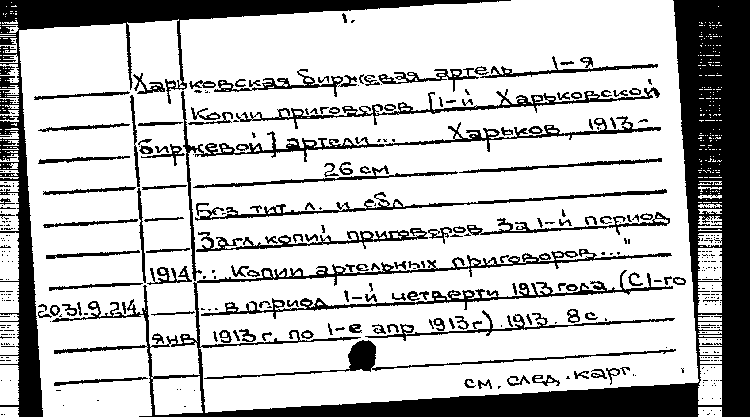 1.
Харьковская биржевая артель 1-я
Копии приговоров [1-й Харьковской
биржевой] артели... Харьков, 1913-
26 см.
Без тит. л. и обл.
Загл. копий приговоров за 1-й период
1914-.: Копии артельных приговоров..."
20 31.9.214. ...в период 1-й четверти 1913 года. (С 1-го
янв 1913 г. по 1-е апр 1913 г.) 1913. 8 с.
см. след. карт.